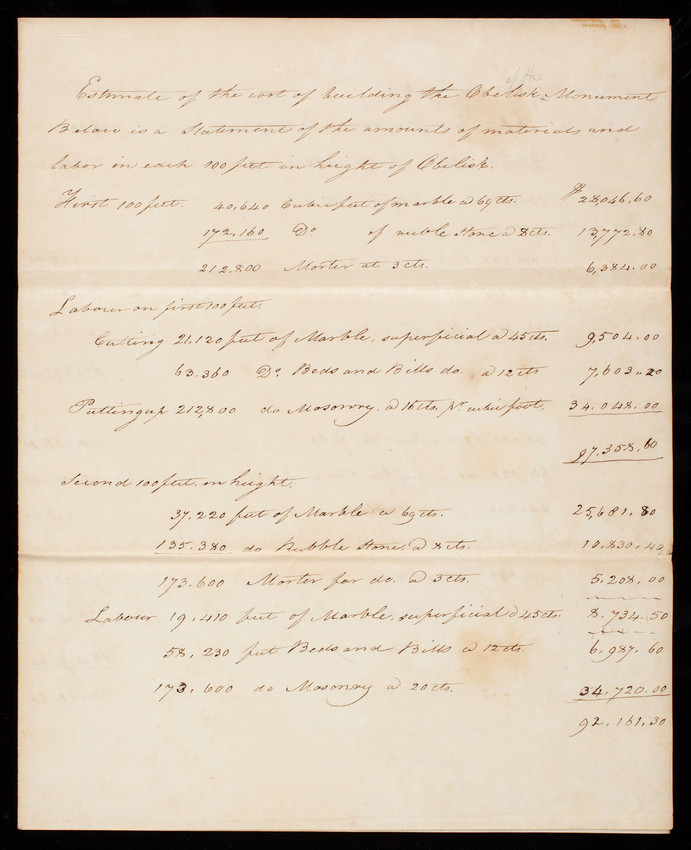 Estimate of the cost of building the Obelisk Monument
Below is a Statement of the amounts of materials and
labor in each 100 feet in height of Obelisk.
First 100 feet. 40,640 Cubic feet of marble a 69 cts. $28,046.60
172,160 Do of rubble stone a 8 cts. 13,772.80
212.800 Morter at 3 cts. 6,384.00
Labour on first 100 feet.
Cutting 21,120 feet of Marble, superficial a 45 cts. 9,504.00
63.360 Do Beds and Bills do. a 12 cts 7,603.20
Putting up 212,800 do Masonry, a 16 cts, pr. cubic foot. 34.048.00
99.358.60
Second 100 feet in height.
37.220 feet of Marble a 69 cts. 25,681.80
135.380 do Rubble Stones, a 8 cts. 10.830.40
173.600 Morter for do. a 3 cts. 5.208.00
Labour 19,410 feet of Marble, superficial a 45 cts. 8.734.50
58,230 feet Beds and Bills a 12 cts. 6.987.60
173.600 do Masonry a 20 cts. 34.720.00
92.161.30